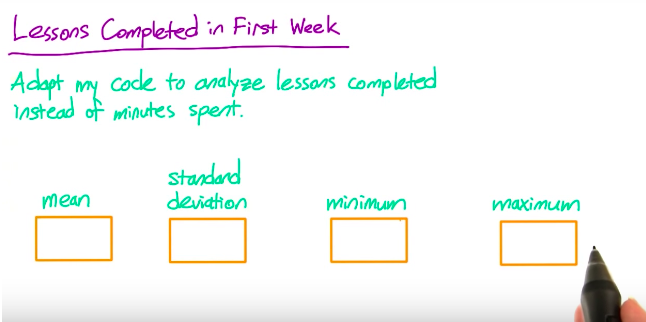 Lessons Completed in First Week
Adapt my code to analyze lessons completed
instead of minutes spent.
mean
standard
deviation
minimum
maximum